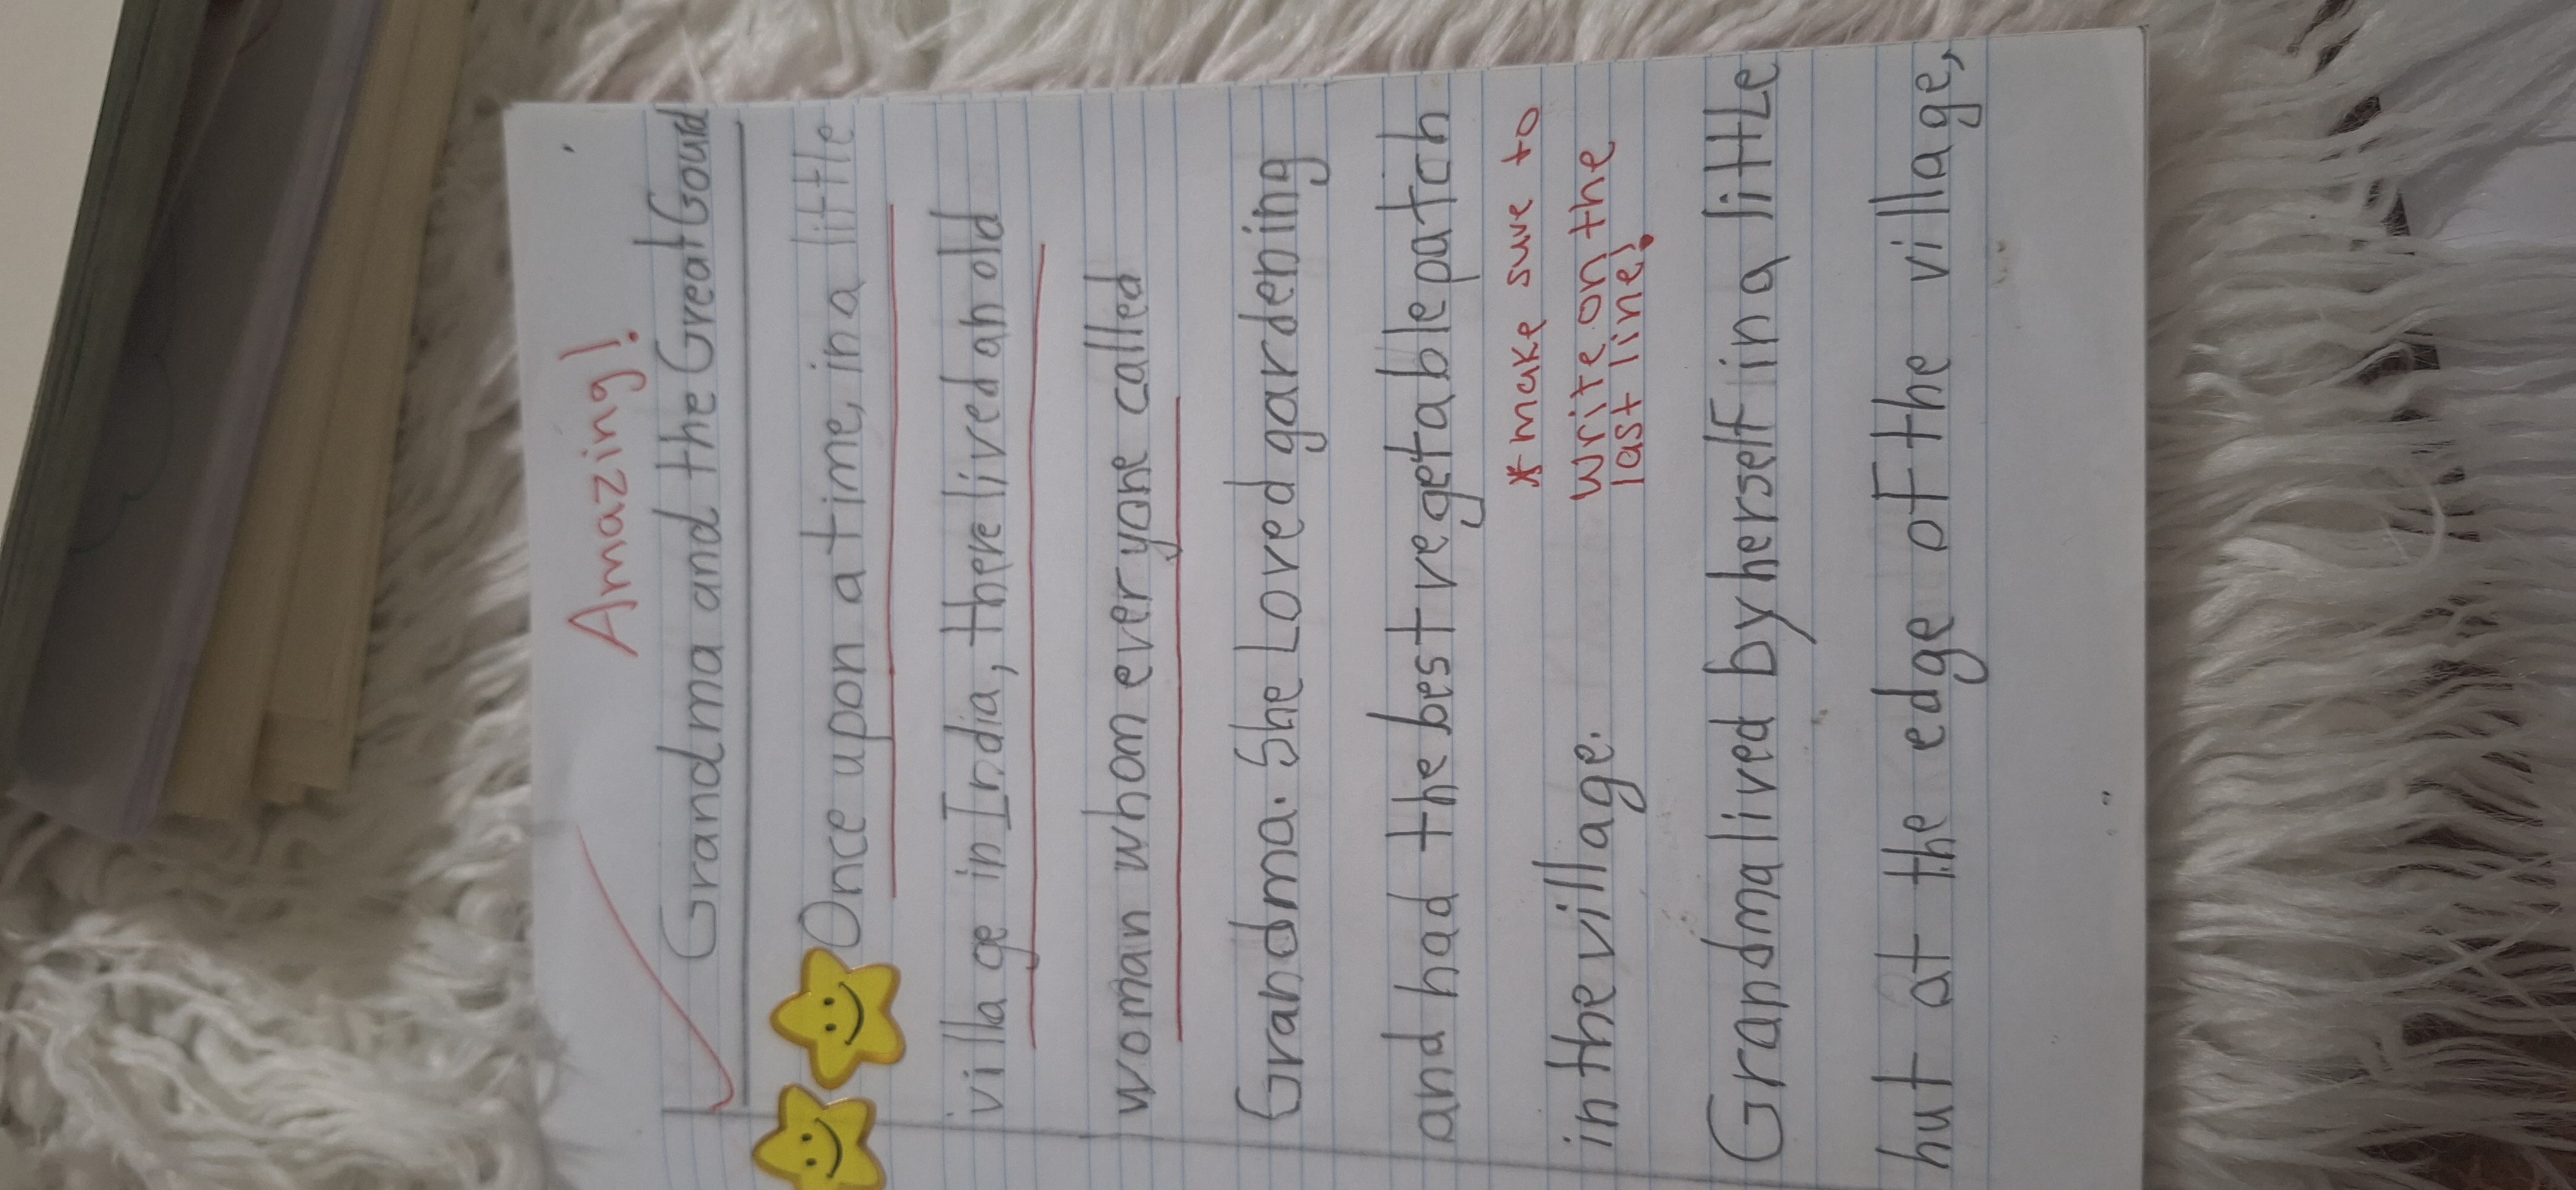 Amazing!
Grandma and the Great Gourd
Once upon a time, in a little
village in India, there lived an old
woman whom everyone called
Grandma. She Loved gardening
and had the best vegetable patch
* make sure to
in the village. write on the
last line!
Grandma lived by herself in a little
hut at the edge of the village,